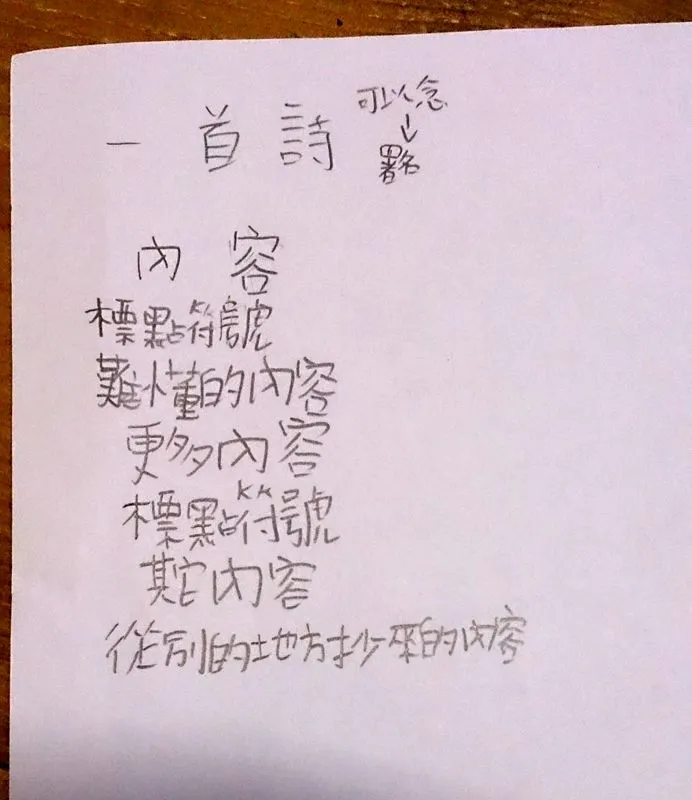 一首詩
可以念
↓
署名
內容
標點符號
難懂的內容
更多內容
標點符號
其它內容
從別的地方抄來的內容